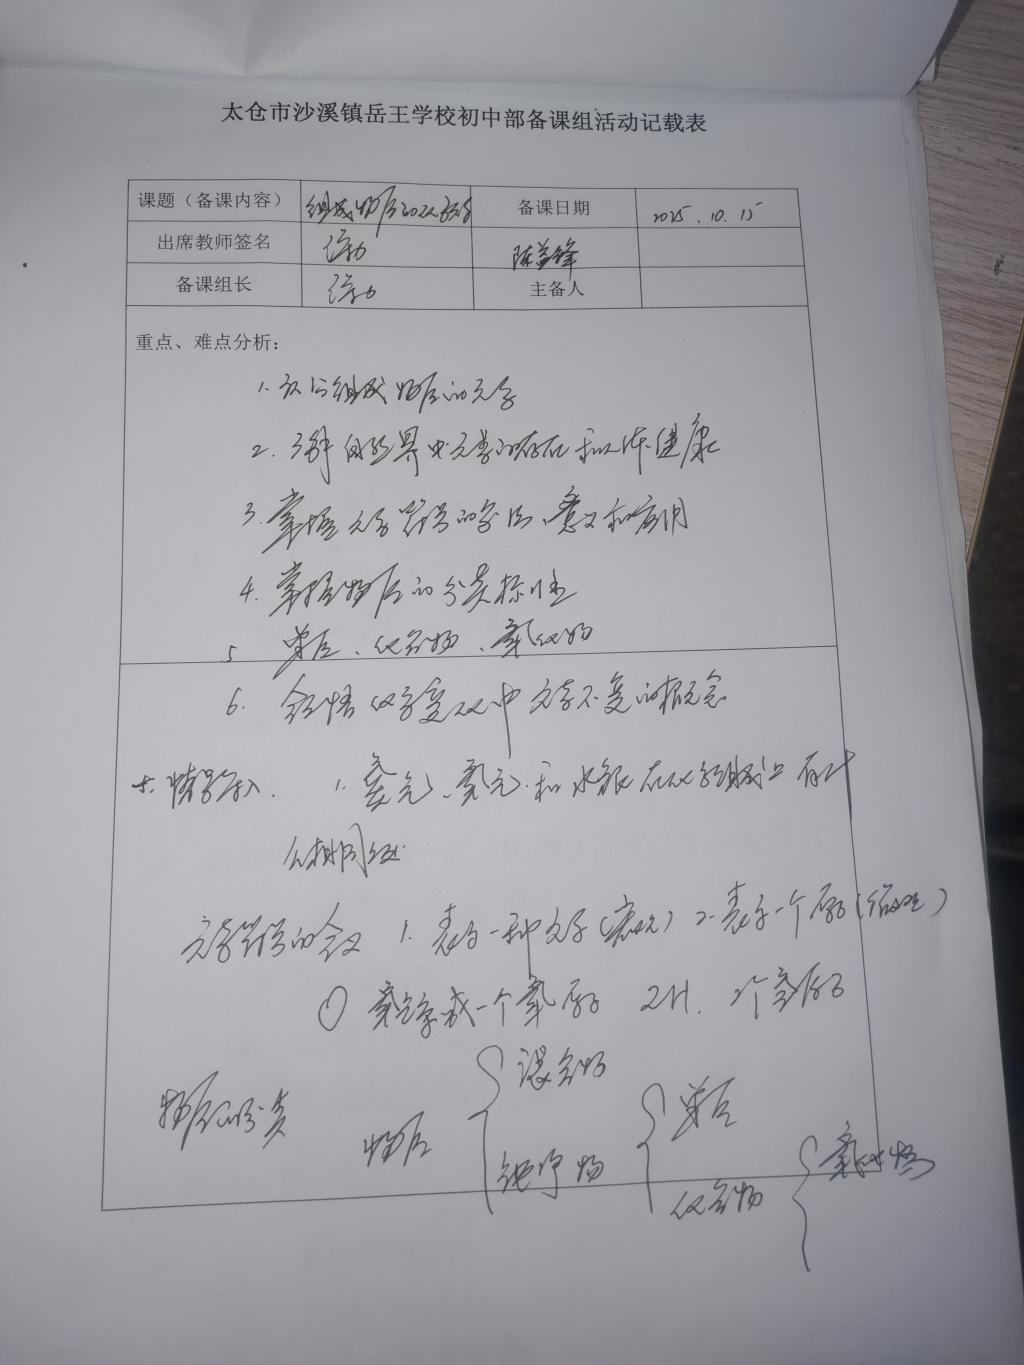 太仓市沙溪镇岳王学校初中部备课组活动记载表
课题（备课内容） 组成物质的化学元素 备课日期 2025.10.15
出席教师签名 陈益锋
备课组长 主备人
重点、难点分析：
1. 认识组成物质的元素
2. 了解自然界中元素的存在和人体健康
3. 掌握元素符号的写法、意义和应用
4. 掌握物质的分类标准
5 单质、化合物、氧化物
6. 会悟化学变化中元素不变的概念
一、情景导入. 1. 氧气、氮气和水银在化学组成上有什
么相同处
元素符号的含义 1. 表示一种元素(宏观) 2. 表示一个原子(微观)
① 氢元素或一个氢原子 2H. 2个氢原子
物质的分类 物质 混合物 纯净物 单质 化合物 氧化物